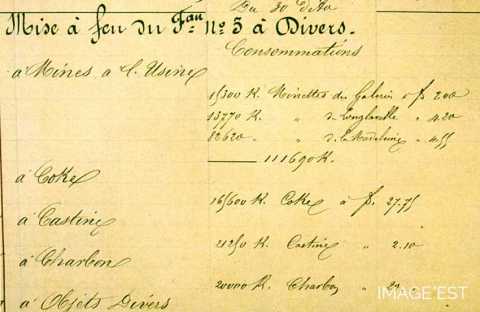 Du 30 Dito
Mise à feu du Fau. No 5 à Divers.
Consommations
à Mines à l'Usine
15300 K. Minettes des Galeries à f 2.00
13770 K. " de Longlaville " 4.20
82620 " de la Madeleine " 4.55
111690 K.
à Coke
165600 K. Coke à f. 27.75
à Castine
21250 K. Castine " 2.10
à Charbon
20000 K. Charbon "
à Objets Divers
IMAGE'EST